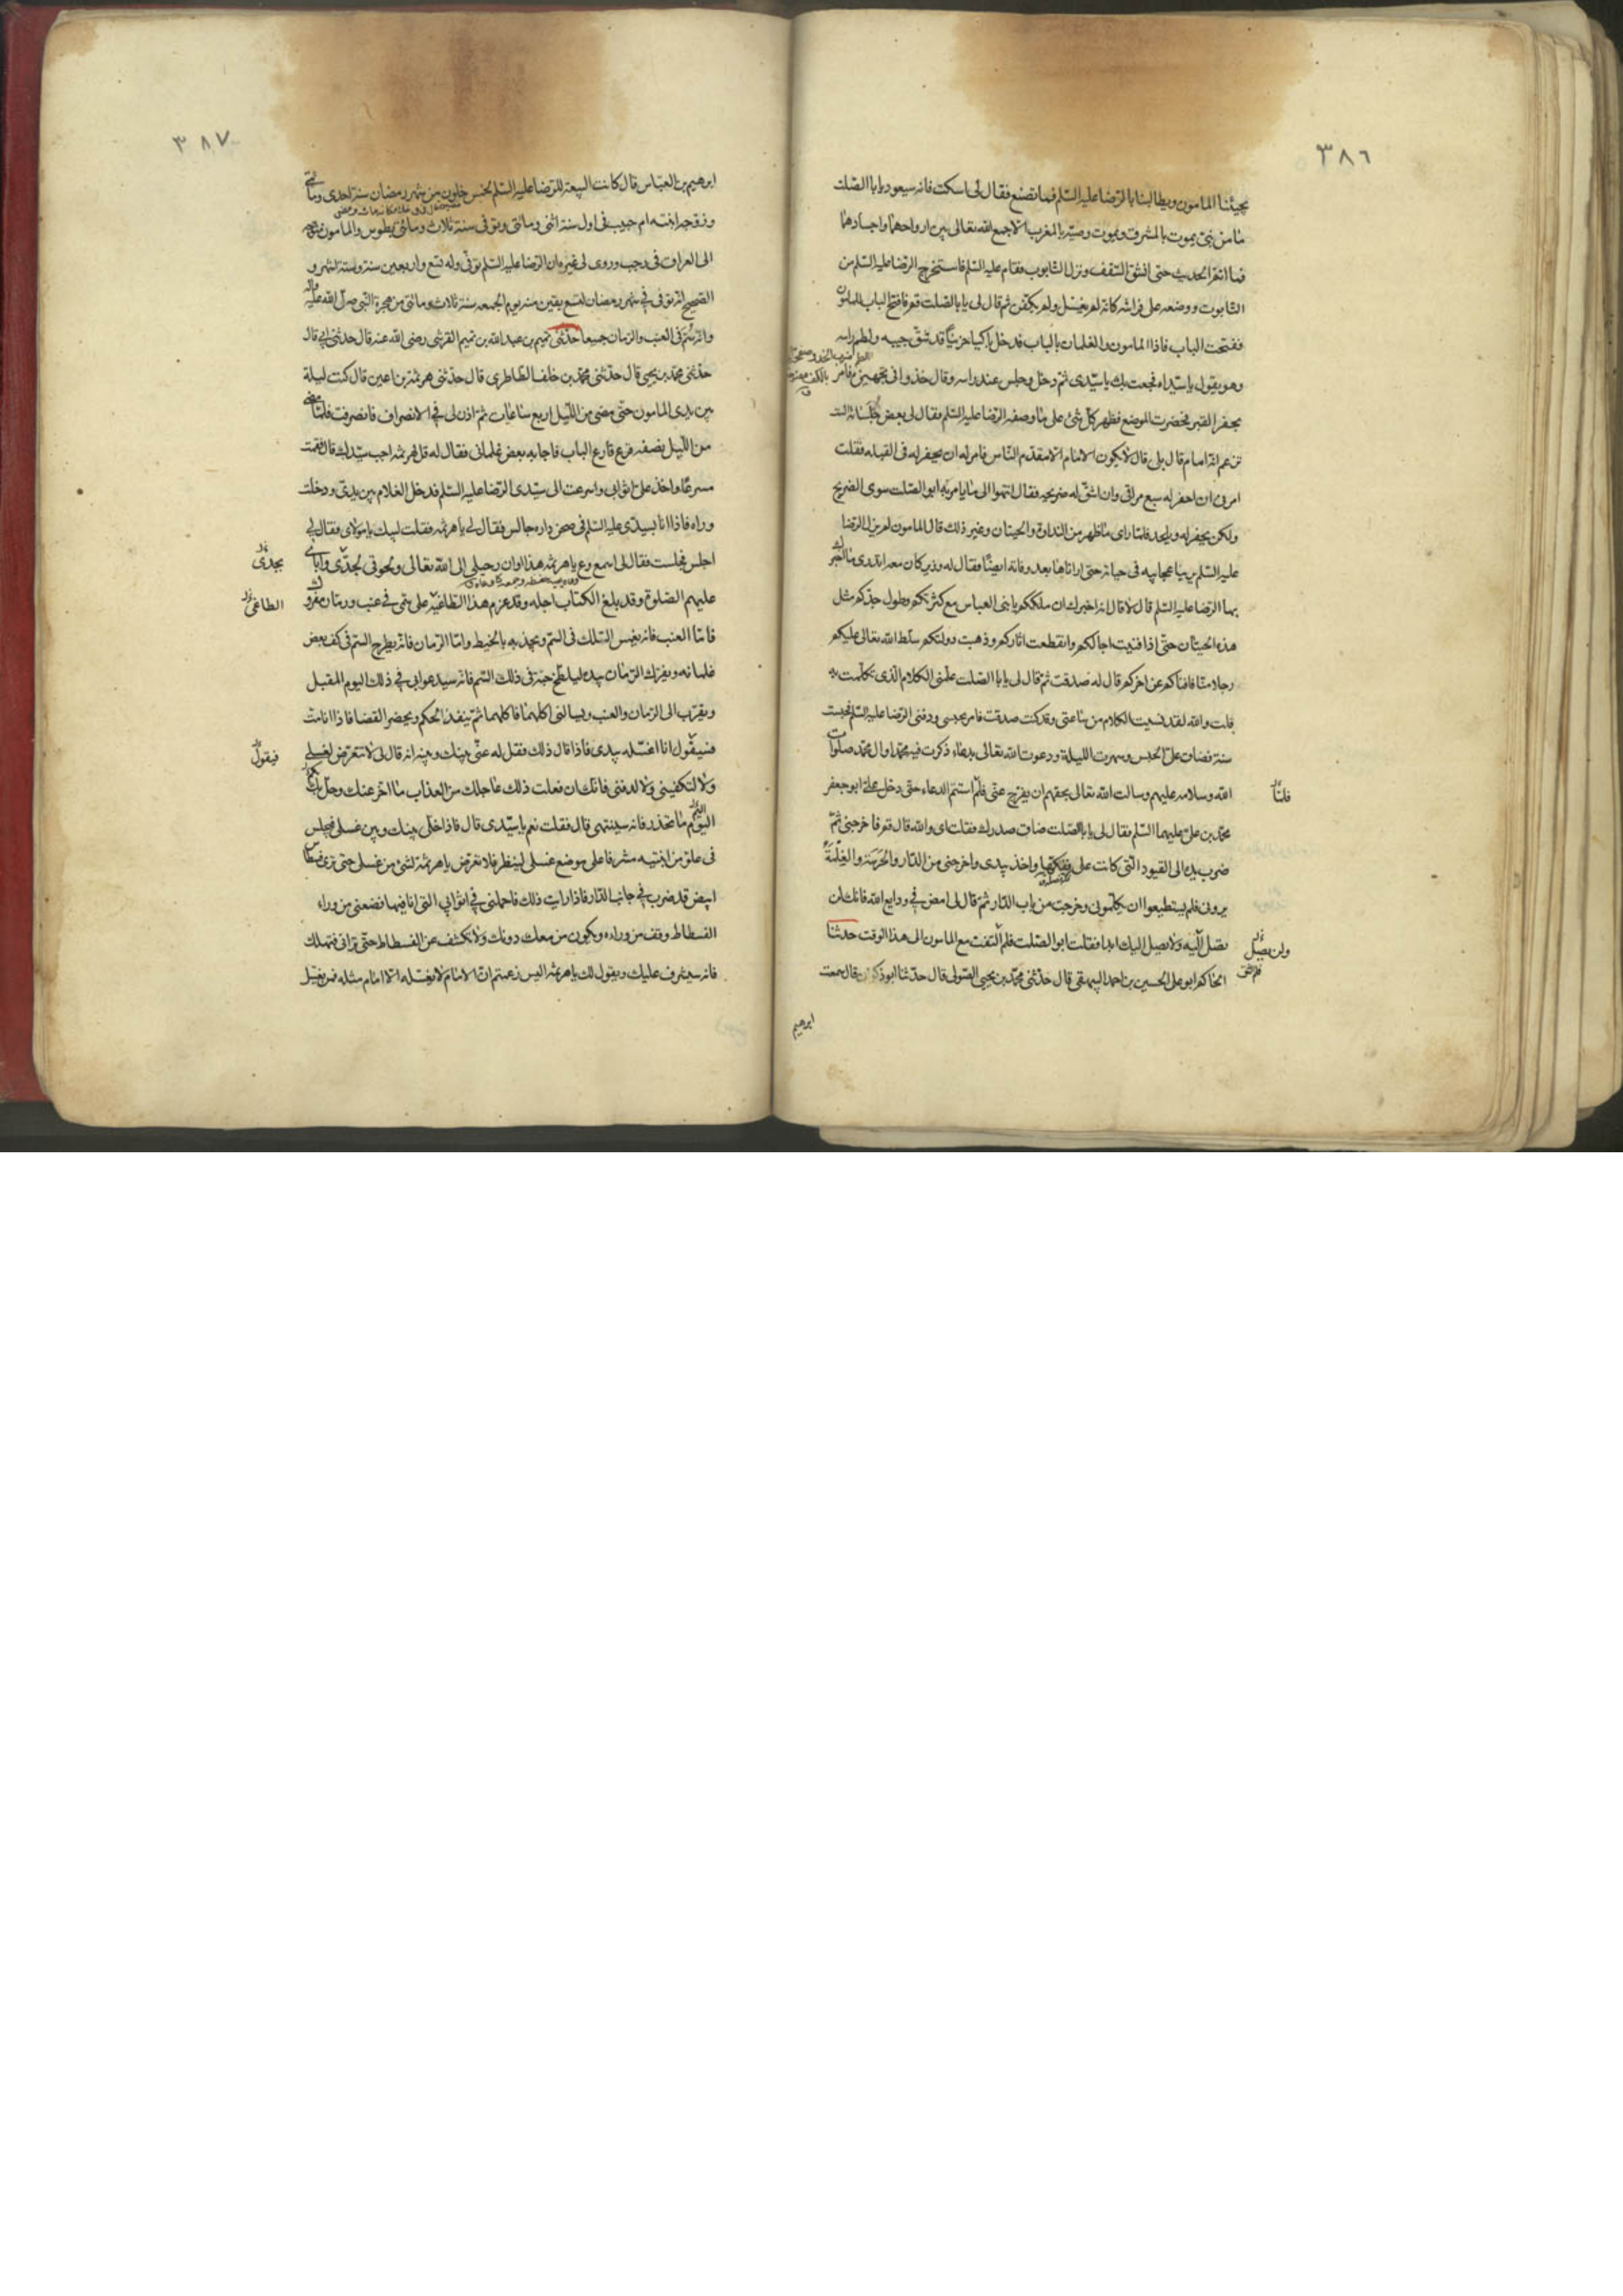 ٣٨٦
يجيئنا المامون ويطالبنا بالرضا عليه السلم فما نصنع فقال لى اسكت فانه سيعود يابا الصلت
ما من نبى يموت بالمشرق ويموت وصيه بالمغرب الا جمع الله تعالى بين ارواحهما واجسادهما
فما اتم الحديث حتى انشق السقف ونزل التابوت فقام عليه السلم فاستخرج الرضا عليه السلم من
التابوت ووضعه على فراشه كانه لم يغسل ولم يكفن ثم قال لى يابا الصلت قم فافتح الباب للمامون
ففتحت الباب فاذا المامون والغلمان بالباب فدخل باكيا حزينا قد شق جيبه ولطم راسه
وهو يقول يا سيداه فجعت بك يا سيدى ثم دخل وجلس عند راسه وقال خذوا فى تجهيزه فامر
بحفر القبر فحضرت الموضع فظهر كل شئ على ما وصفه الرضا عليه السلم فقال لى بعض جلسائه الست
تزعم انه امام قال بلى قال لا يكون الامام الا مقدم الناس فامر له ان يحفر له فى القبله فقلت
امرنى ان احفر له سبع مراقى وان اشق له ضريحه فقال انتهوا الى ما يامر به ابو الصلت سوى الضريح
ولكن يحفر له ويلحد فلما راى ما ظهر من النداوة والحيتان وغير ذلك قال المامون لم يزل الرضا
عليه السلم يرينا عجايبه فى حياته حتى اراناها بعد وفاته ايضا فقال له وزير كان معه اتدرى ما اخبرك
بها الرضا عليه السلم قال لا قال انه اخبرك ان ملككم يا بنى العباس مع كثرتكم وطول حذكم مثل
هذه الحيتان حتى اذا فنيت اجالكم وانقطعت اثاركم وذهبت دولتكم سلط الله تعالى عليكم
رجلا منا فافناكم عن اخركم قال له صدقت ثم قال لى يابا الصلت علمنى الكلام الذى تكلمت به
قلت والله لقد نسيت الكلام من ساعتى وقد كنت صدقت فامر بحبسى ودفن الرضا عليه السلم فحبست
سنة فضاق على الحبس وسهرت الليلة ودعوت الله تعالى بدعاء ذكرت فيه محمدا وال محمد صلوات
الله وسلامه عليهم وسالت الله تعالى بحقهم ان يفرج عنى فلم استتم الدعاء حتى دخل على ابو جعفر
فلما
محمد بن على عليهما السلم فقال لى يابا الصلت ضاق صدرك فقلت اى والله قال قم فاخرجنى ثم
ضرب يده الى القيود التى كانت على ففكها واخذ بيدى واخرجنى من الدار والحرسة والغلمة
يرونى فلم يستطيعوا ان يكلمونى وخرجت من باب الدار ثم قال لى امض فى ودايع الله فانك لن
تصل اليه ولا يصل اليك ابدا فقلت ابو الصلت فلم التفت مع المامون الى هذا الوقت حدثنا
ولن يصل
فلم التق
الحاكم ابو على الحسين بن احمد البيهقى قال حدثنى محمد بن يحيى الصولى قال حدثنا ابو ذكوان قال سمعت
ابرهيم
٣٨٧
ابرهيم بن العباس قال كانت البيعة للرضا عليه السلم لخمس خلون من شهر رمضان سنة احدى ومائتى
وزوجه ابنته ام حبيب فى اول سنة اثنى ومائتى وتوفى سنة ثلاث ومائتى بطوس والمامون متوجه
الى العراق فى رجب وروى لى غيره ان الرضا عليه السلم توفى وله تسع واربعين سنة وستة اشهر و
الصحيح انه توفى فى شهر رمضان لتسع بقين منه يوم الجمعه سنة ثلاث ومائتى من هجرة النبى صلى الله عليه واله
وانه سم فى العنب والرمان جميعا حدثنى تميم بن عبد الله بن تميم القرشى رضى الله عنه قال حدثنى ابى قال
حدثنى محمد بن يحيى قال حدثنى محمد بن خلف الطاطرى قال حدثنى هرثمة بن اعين قال كنت ليلة
بين يدى المامون حتى مضى من الليل اربع ساعات ثم اذن لى فى الانصراف فانصرفت فلما مضى
من الليل نصفه قرع قارع الباب فاجابه بعض غلمانى فقال له قل لهرثمه اجب سيدك قال فقمت
مسرعا واخذ على اثوابى واسرعت الى سيدى الرضا عليه السلم فدخل الغلام بين يدى ودخلت
وراه فاذا انا بسيدى عليه السلم فى صحن داره جالس فقال لى يا هرثمه فقلت لبيك يا مولاى فقال لى
اجلس فجلست فقال لى اسمع وع يا هرثمه هذا اوان رحيلى الى الله تعالى ولحوقى بجدى وابائى
بجدى
عليهم الصلوة وقد بلغ الكتاب اجله وقد عزم هذا الطاغية على سمى فى عنب ورمان مفروك
الطاغى
فاما العنب فانه يغمس السلك فى السم ويجذبه بالخيط واما الرمان فانه يطرح السم فى كف بعض
غلمانه ويفرك الرمان بيده ليلطخ حبه فى ذلك السم فانه سيدعونى فى ذلك اليوم المقبل
ويقرب الى الرمان والعنب ويسالنى اكلهما فاكلهما ثم ينفذ الحكم ويحضر القضا فاذا انا مت
فسيقول انا اغسله بيدى فاذا قال ذلك فقل له عنى بينك وبينه انه قال لى لا تتعرض لغسلى
فيقول
ولا لتكفينى ولا لدفنى فانك ان فعلت ذلك عاجلك من العذاب ما اخر عنك وحل بك
اليم ما تحذر فانه سينتهى قال فقلت نعم يا سيدى قال فاذا خلى بينك وبين غسلى فيجلس
فى علو من ابنيته مشرفا على موضع غسلى لينظر فلا تعرض يا هرثمة لشئ من غسلى حتى ترى فسطاطا
ابيض قد ضرب فى جانب الدار فاذا رايت ذلك فاحملنى فى اثوابى التى انا فيها فضعنى من وراء
الفسطاط وقف من وراءه ويكون من معك دونك ولا تكشف عن الفسطاط حتى ترانى فتهلك
فانه سيشرف عليك ويقول لك يا هرثمه اليس زعمتم ان الامام لا يغسله الا امام مثله فمن يغسل